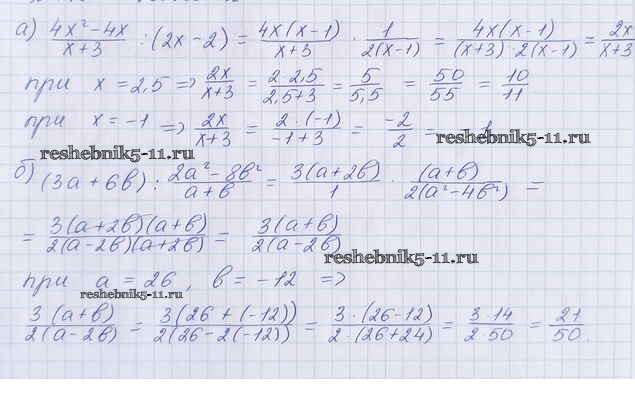 а) (4x² - 4x)/(x + 3) : (2x - 2) = (4x(x - 1))/(x + 3) · 1/(2(x - 1)) = (4x(x - 1))/((x + 3) · 2(x - 1)) = 2x/(x + 3)
при x = 2,5 => 2x/(x + 3) = (2 · 2,5)/(2,5 + 3) = 5/5,5 = 50/55 = 10/11
при x = -1 => 2x/(x + 3) = (2 · (-1))/(-1 + 3) = -2/2 = - 1
reshebnik5-11.ru
reshebnik5-11.ru
б) (3a + 6b) : (2a² - 8b²)/(a + b) = (3(a + 2b))/1 · (a + b)/(2(a² - 4b²)) =
= (3(a + 2b)(a + b))/(2(a - 2b)(a + 2b)) = (3(a + b))/(2(a - 2b))
reshebnik5-11.ru
при a = 26, b = -12 =>
reshebnik5-11.ru
(3(a + b))/(2(a - 2b)) = (3(26 + (-12)))/(2(26 - 2(-12))) = (3 · (26 - 12))/(2 · (26 + 24)) = (3 · 14)/(2 · 50) = 21/50.